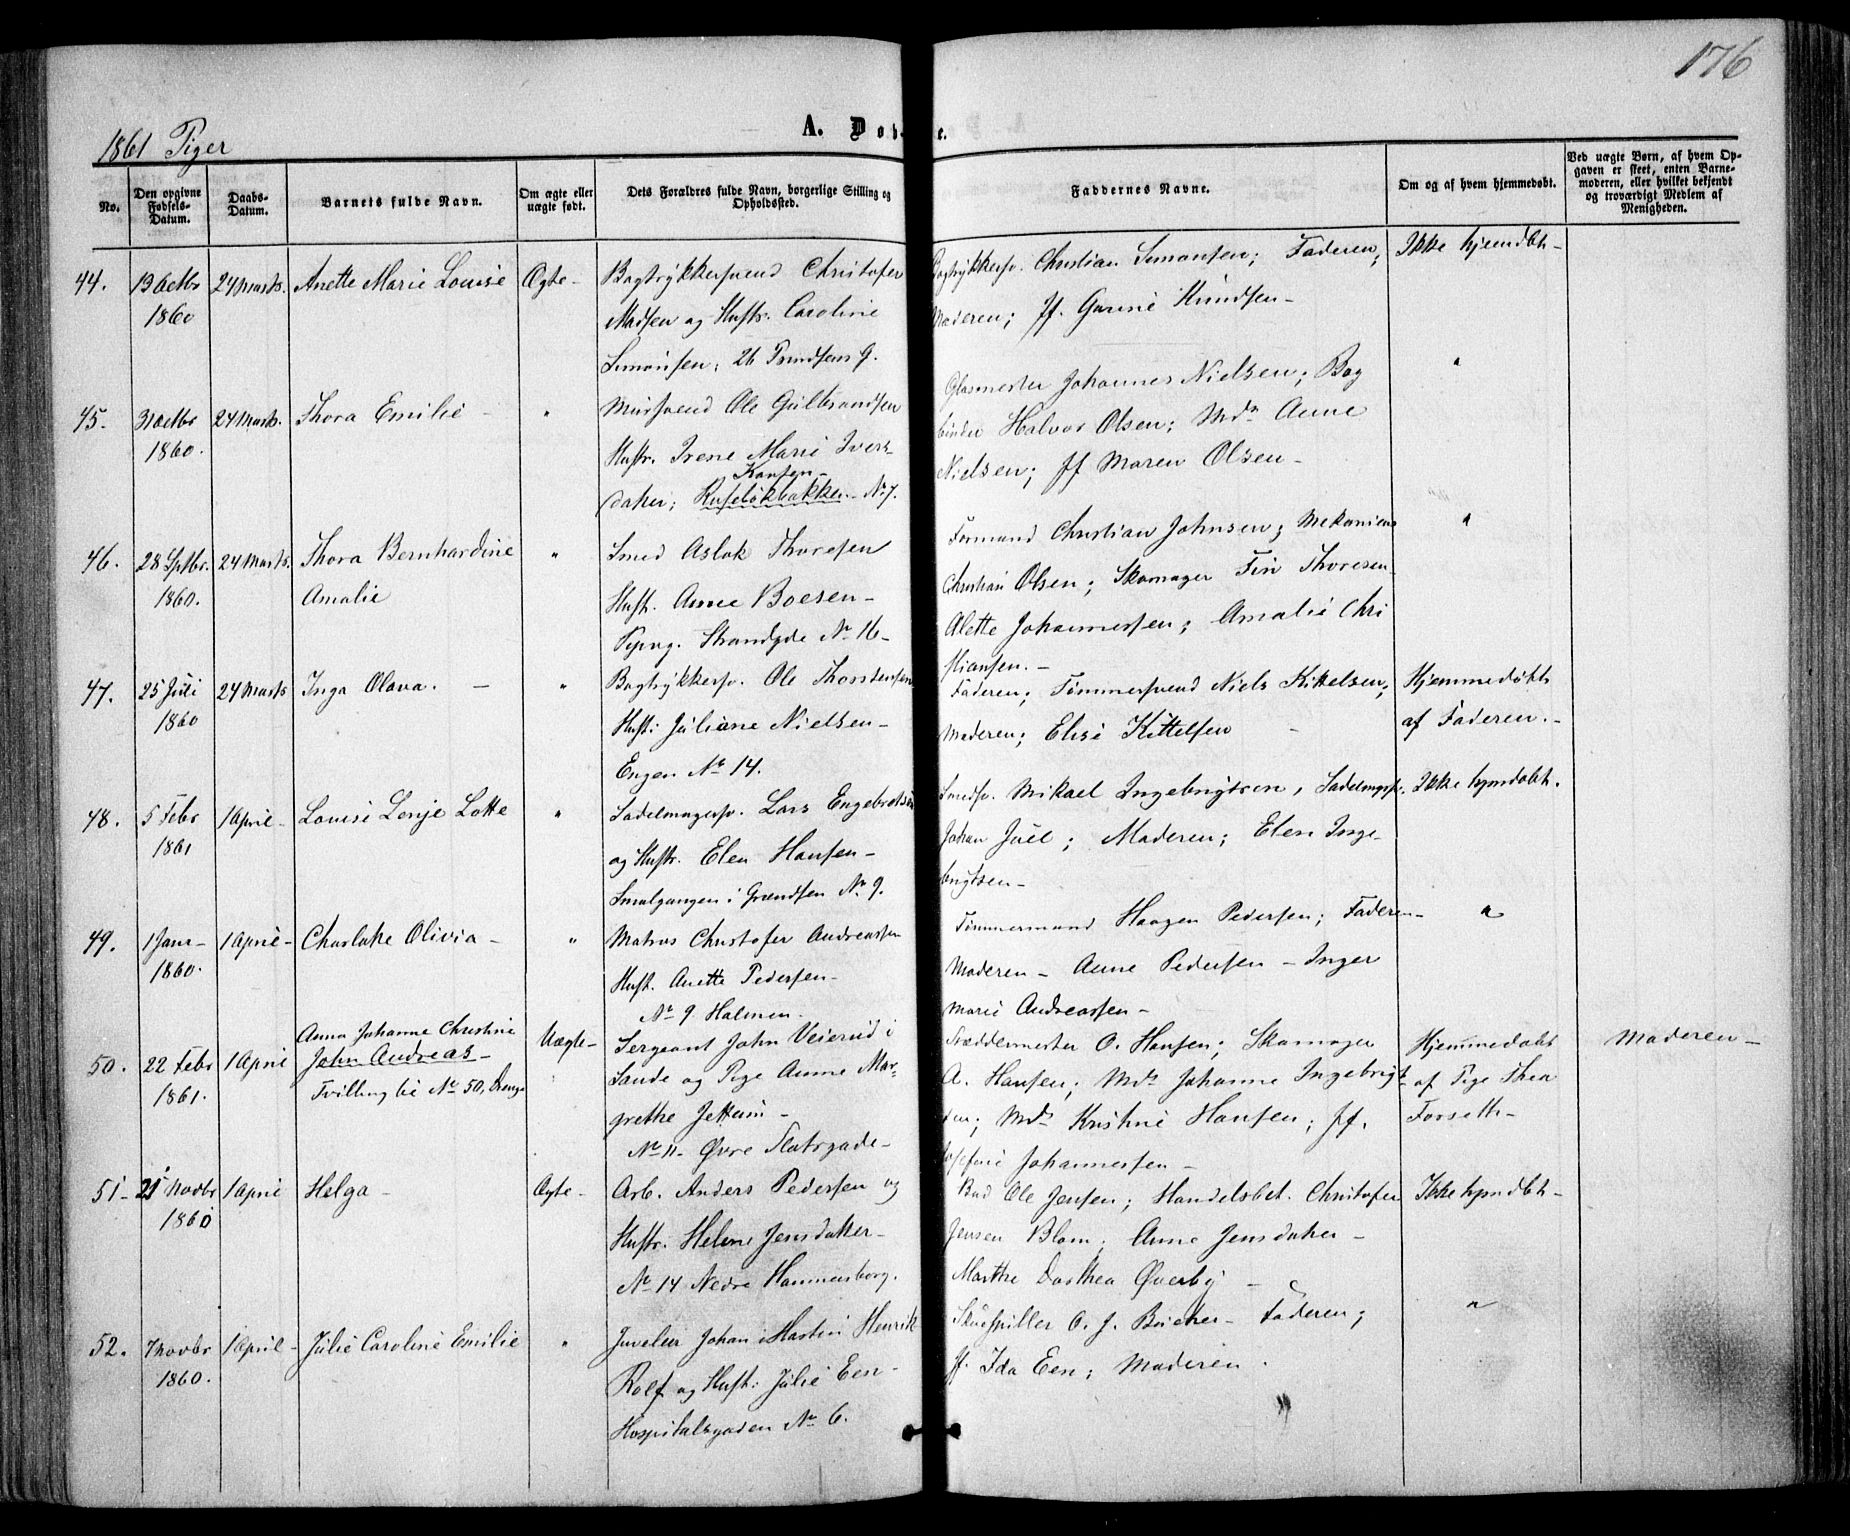 176
1861 Piger
A. Døb
e.
No.
Den opgivne Fødsels-Datum.
Daabs-Datum.
Barnets fulde Navn.
Om ægte eller uægte født.
Dets Forældres fulde Navn, borgerlige Stilling og Opholdssted.
Faddernes Navne.
Om og af hvem hjemmedøbt.
Ved uægte Børn, af hvem Opgaven er skeet, enten Barnemoderen, eller hvilket bekjendt og troværdigt Medlem af Menigheden.
44. 19 Octbr 24 Marts. Anette Marie Louise Ægte- Bogtrykkersvend Christofer
1860 Madsen og Hustr. Caroline
Simonsen; 26 Prindsens G.
Bogtrykkersv. Christian Simonsen; Faderen; Ikke hjemdbt-
Moderen; Jf. Gurine Knudsen-
45. 31 Octbr 24 Marts. Thora Emilie - " Mursvend Ole Gulbrandsen
1860. Hustr. Irene Marie Ivers-
Karsten-
datter; Ruseløkbakken- No 7.
Glasmester Johannes Nielsen; Bog "
binder Halvor Olsen; Mdm Anne
Nielsen; Jf Maren Olsen-
46. 28 Septbr. 24 Marts. Thora Bernhardine " Smed Aslak Thoresen
1860. Amalie Hust. Anne Boesen-
Pipvg. Strandgde No 16-
Formand Christian Johnsen; Mekanicus "
Christian Olsen; Skomager Fin Thoresen-
Alette Johannessen; Amalie Chri
stiansen.-
47. 25 Juli 24 Marts Inga Olava. - " Bogtrykkersv. Ole Thorstensen
1860 Hust: Juliane Nielsen-
Engen No 14.
Faderen; Tømmersvend Niels Kittelsen; Hjemmedøbt
Moderen; Elise Kittelsen - af Faderen.-
48. 5 Febr 1 April- Louise Lenje Lotte " Sadelmagersv. Lars Engebretsen
1861 og Hustr. Elen Hansen-
Smalgangen i Grændsen No 9.
Smedsv. Mikael Ingebrigtsen, Sadelmgsv. Ikke hjmdøbt.
Johan Juel; Moderen; Elen Inge-
brigtsen-
49. 1 Janr- 1 April- Charlotte Olivia - " Matros Christofer Andreassen
1860. Hust. Anette Pedersen-
No 9 Holmen.
Tømmermand Haagen Pedersen; Faderen- "
Moderen- Anne Pedersen- Inger
Marie Andreassen-
Anna Johanne Christine
50. 22 Febr 1 April John Andreas- Uægte- Sergeant John Veierud i
1861. Tvilling til No 50, Drenge Sande og Pige Anne Mar-
grethe Jettum-
No 11- Øvre Slotsgade-
Fræddermester O. Hansen; Skomager Hjemmedøbt Moderen-
A. Hansen; Mdm Johanne Ingebrigt- af Pige Thea
sen; Mdm Kristine Hansen; Jf. Forseth-
Josefine Johannessen-
51- 21 Novbr 1 April Helga- Ægte- Arb. Anders Pedersen og
1860 Hustr. Helene Jensdatter-
No 14 Nedre Hammersborg.
Bud Ole Jensen; Handelsbet. Christofer Ikke hjmdbt-
Jensen Blom; Anne Jensdatter-
Marthe Dorthea Øverby -
52. 7 Novbr 1 April- Julie Caroline Emilie " Juveleer Johan Martin Henrik
1860. Rolf og Hust: Julie Een-
Hospitalsgaden No 6.
Skuespiller O. J. Bucher- Faderen; "
Jf. Ida Een; Moderen.